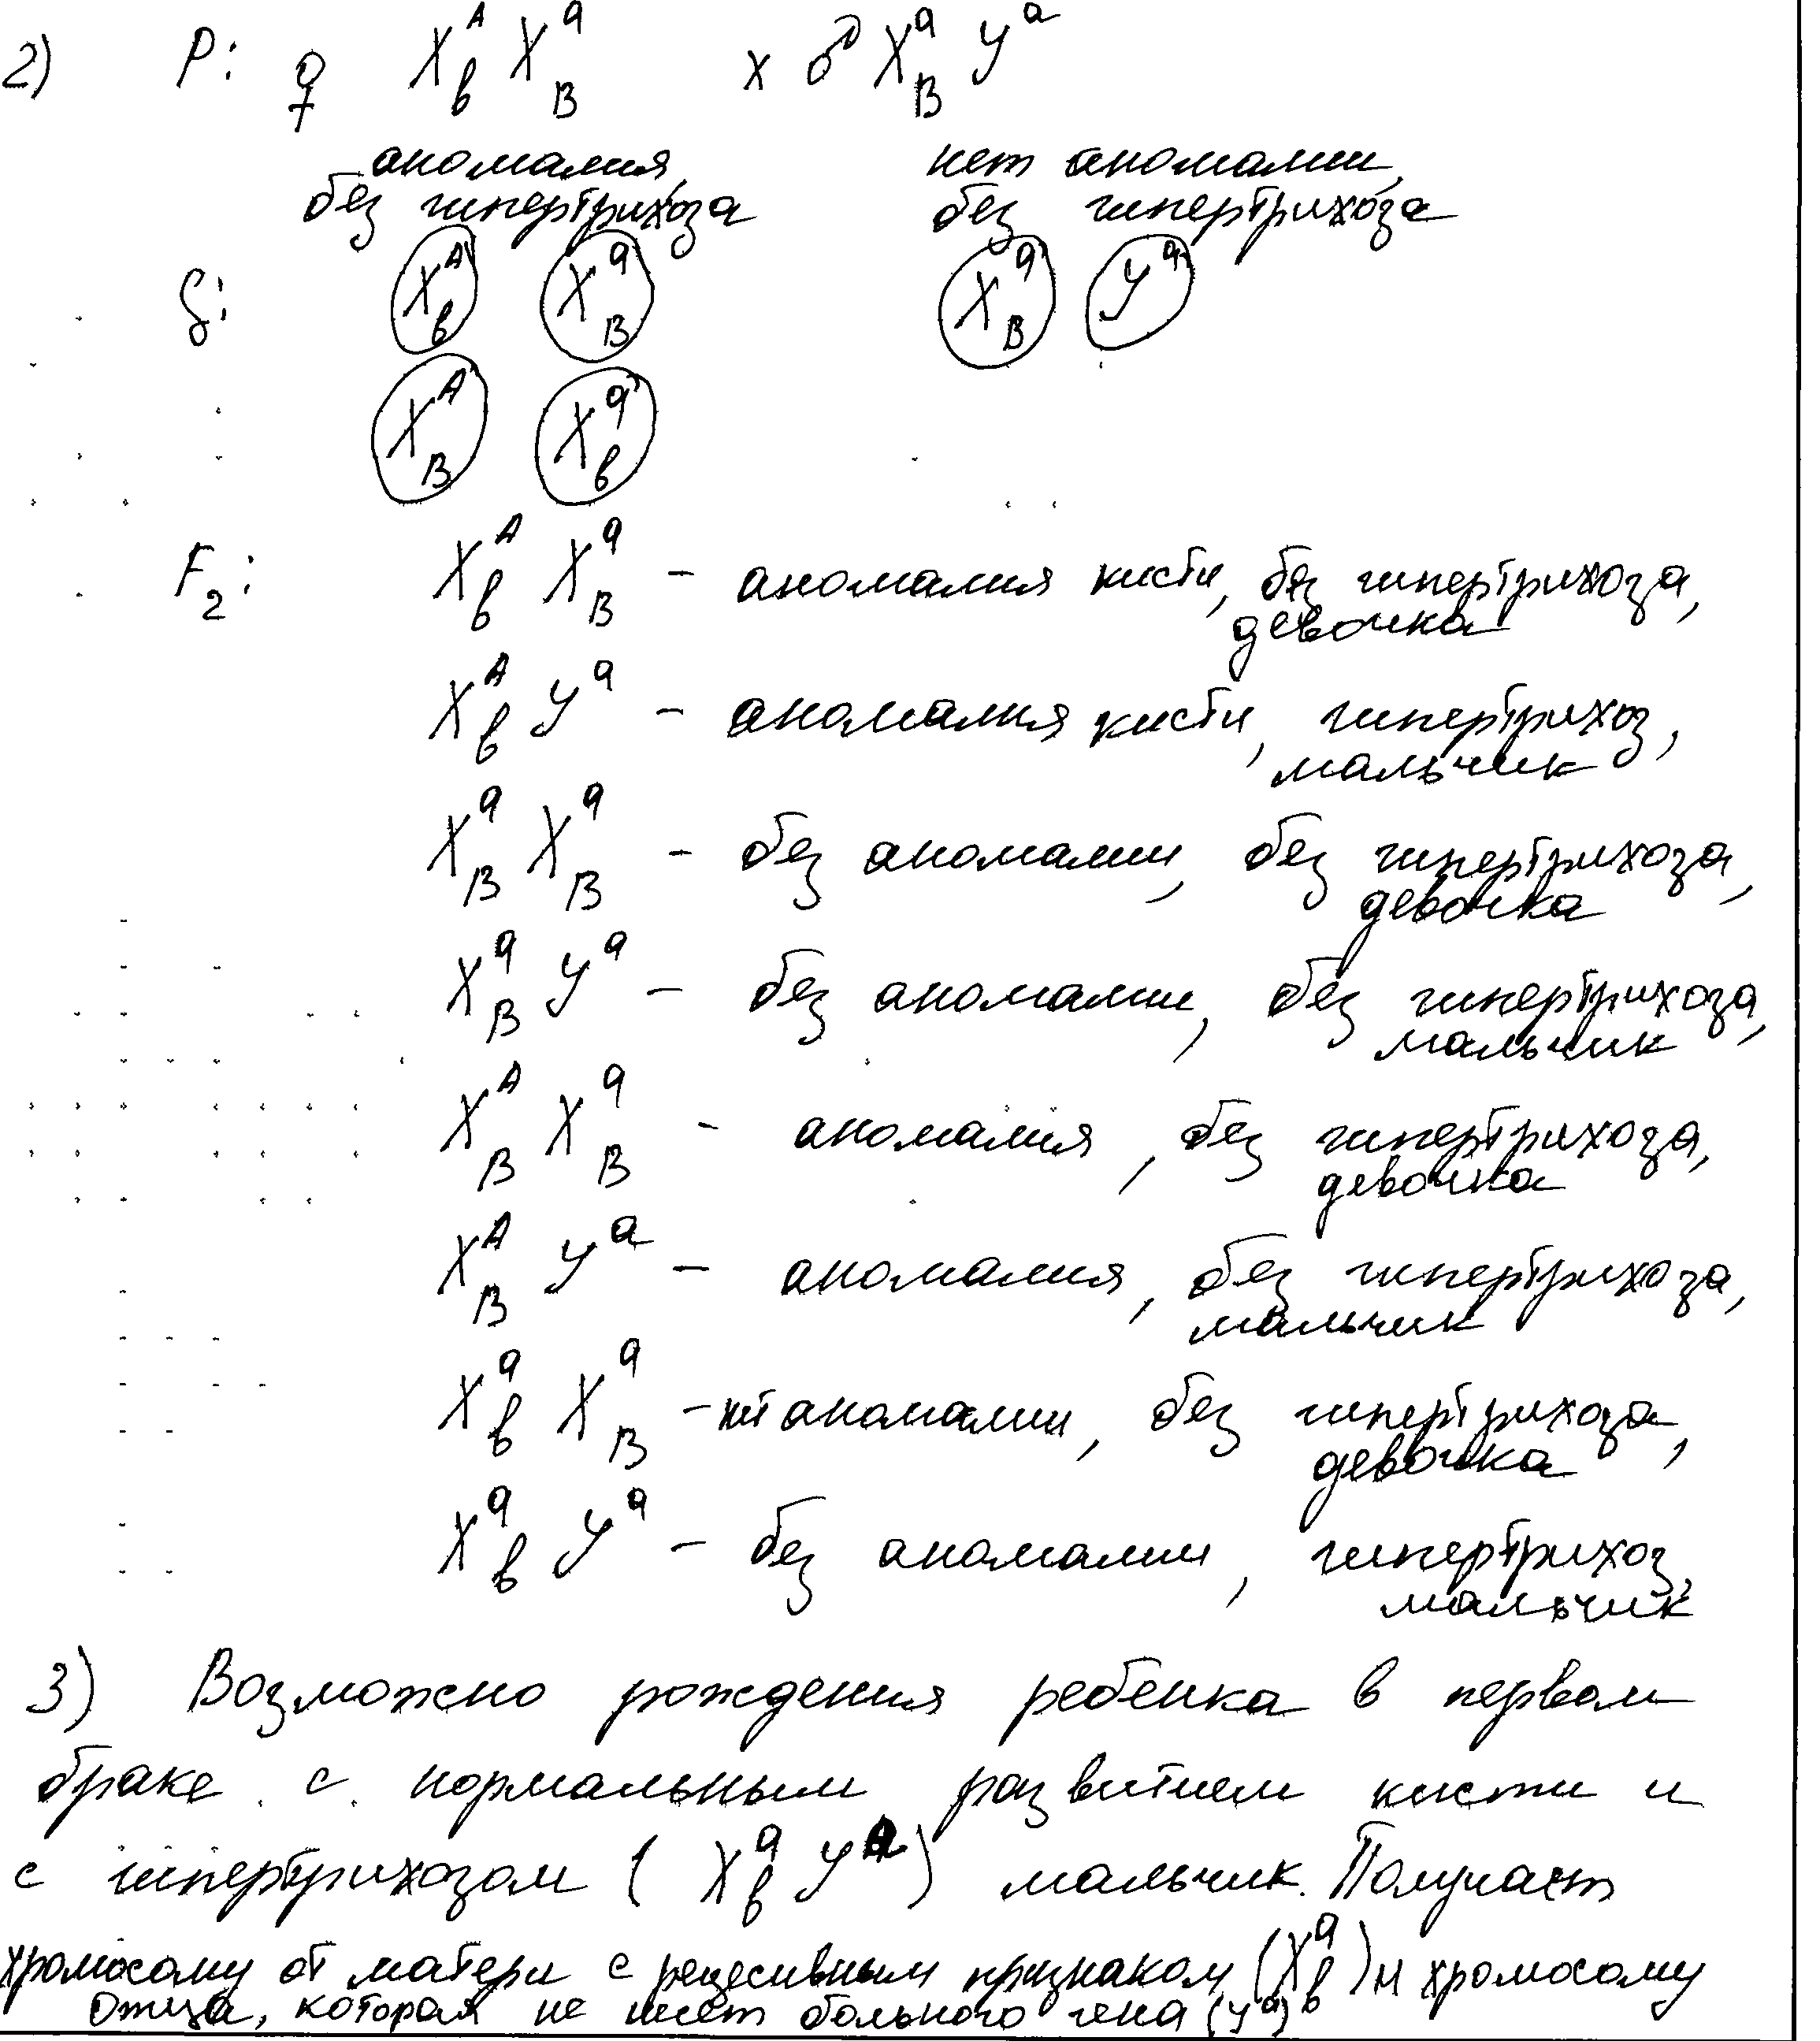 2) P: ♀ XᴬbXᵃB x ♂ XᵃBYᵃ
аномалия, нет аномалии,
без гипертрихоза без гипертрихоза
G: Xᴬb XᵃB XᵃB Yᵃ
XᴬB Xᵃb
F₂: Xᴬb XᵃB – аномалия кисти, без гипертрихоза,
девочка
Xᴬb Yᵃ – аномалия кисти, гипертрихоз,
мальчик
XᵃB XᵃB – без аномалии, без гипертрихоза,
девочка
XᵃB Yᵃ – без аномалии, без гипертрихоза,
мальчик
XᴬB XᵃB – аномалия, без гипертрихоза,
девочка
XᴬB Yᵃ – аномалия, без гипертрихоза,
мальчик
Xᵃb XᵃB – нет аномалии, без гипертрихоза,
девочка
Xᵃb Yᵃ – без аномалии, гипертрихоз,
мальчик
3) Возможно рождения ребенка в первом
браке с нормальным развитием кисти и
с гипертрихозом (Xᵃb Yᵃ) мальчик. Получает
хромосому от матери с рецесивным признаком (Xᵃb) и хромосому
отца, которая не несет больного гена (Yᵃ)